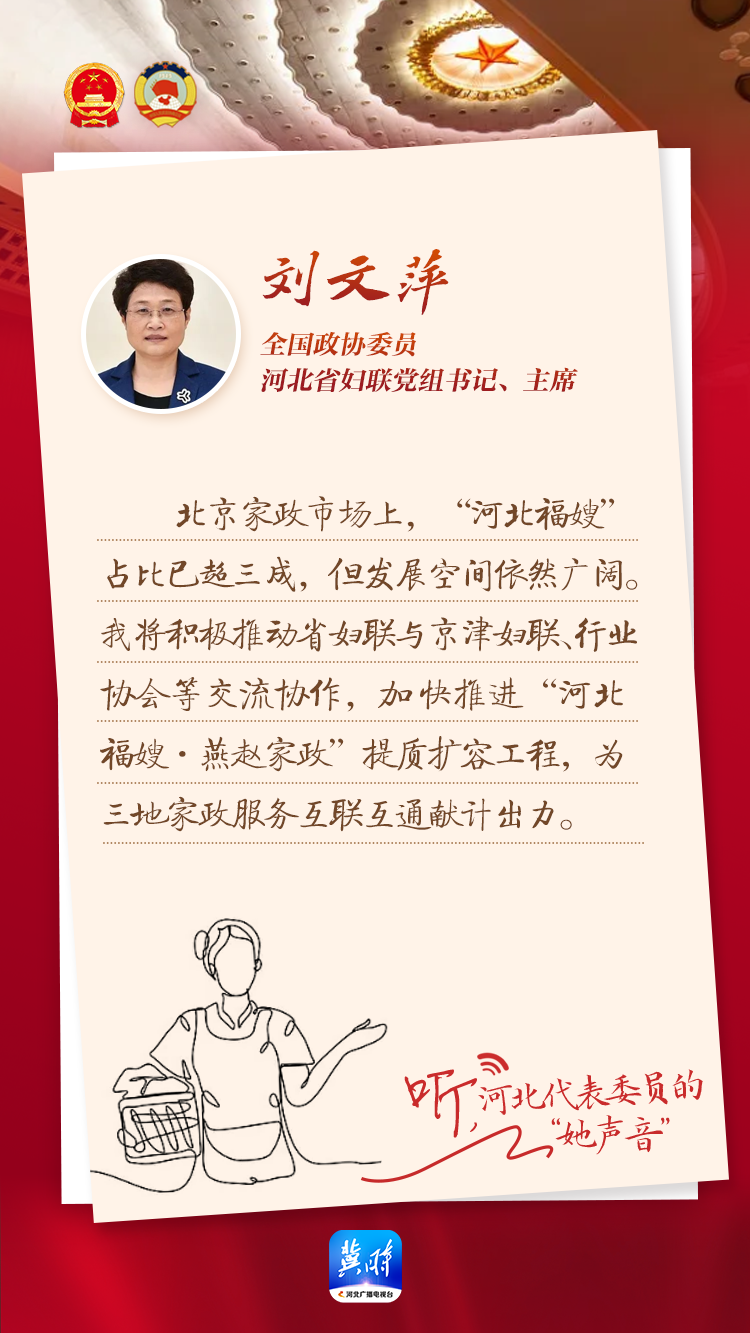 刘文萍
全国政协委员
河北省妇联党组书记、主席
北京家政市场上，“河北福嫂”
占比已超三成，但发展空间依然广阔。
我将积极推动省妇联与京津妇联、行业
协会等交流协作，加快推进“河北
福嫂·燕赵家政”提质扩容工程，为
三地家政服务互联互通献计出力。
听，河北代表委员的
“她声音”
冀时
河北广播电视台